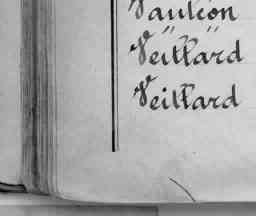 Vauléon
Veillard
Veillard